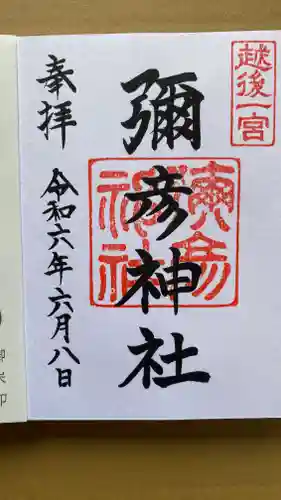 越後一宮
彌彦神社
彌彦神社
奉拝
令和六年六月八日
御朱印